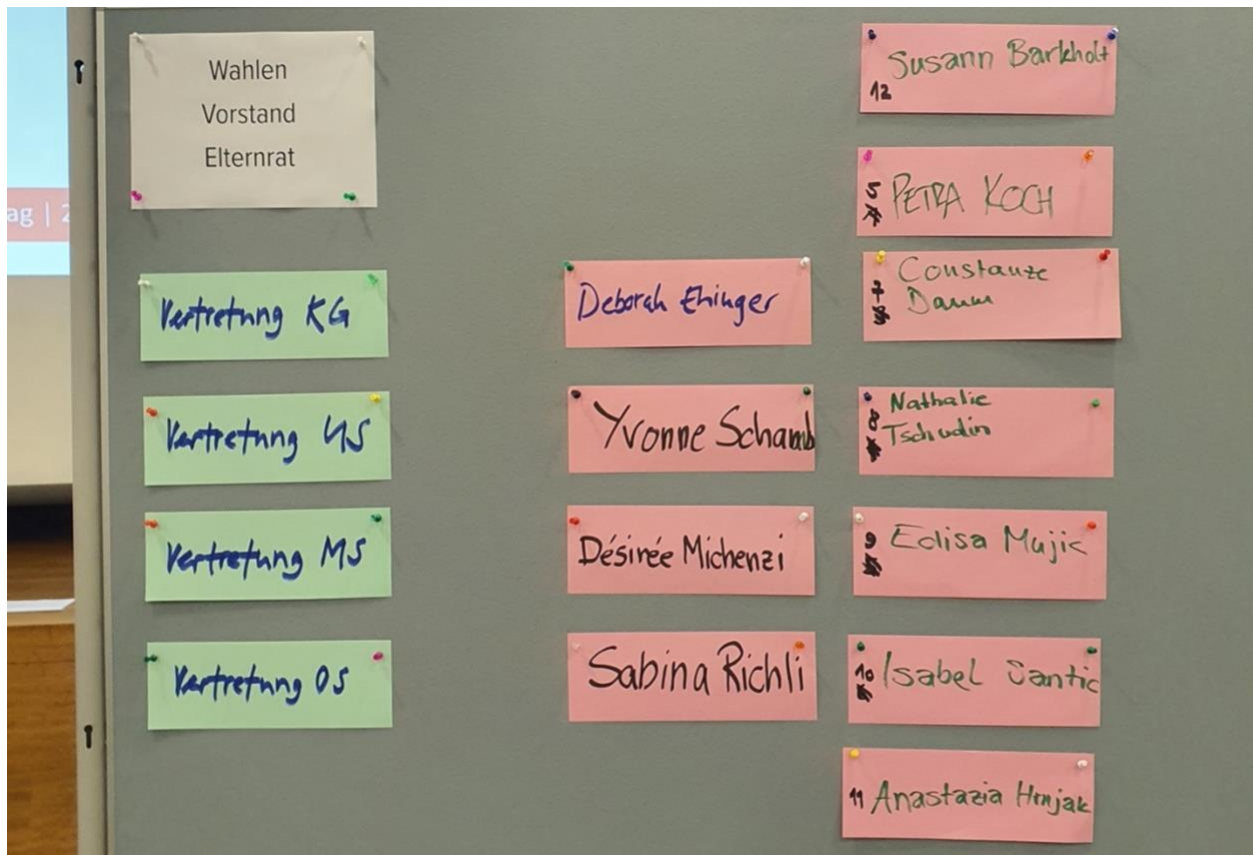 Wahlen
Vorstand
Elternrat
ag | 2
Vertretung KG
Vertretung US
Vertretung MS
Vertretung OS
Deborah Ehinger
Yvonne Schamb
Désirée Michenzi
Sabina Richli
Susann Barkholt
12
5 PETRA KOCH
7 Constanze
Damm
8 Nathalie
Tschudin
9 Edisa Mujic
10 Isabel Santic
11 Anastazia Hrnjak